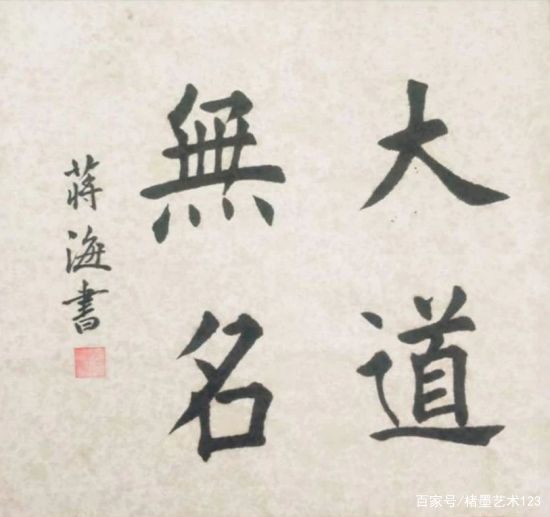 大道
無名
蒋海書
百家号/楮墨艺术123